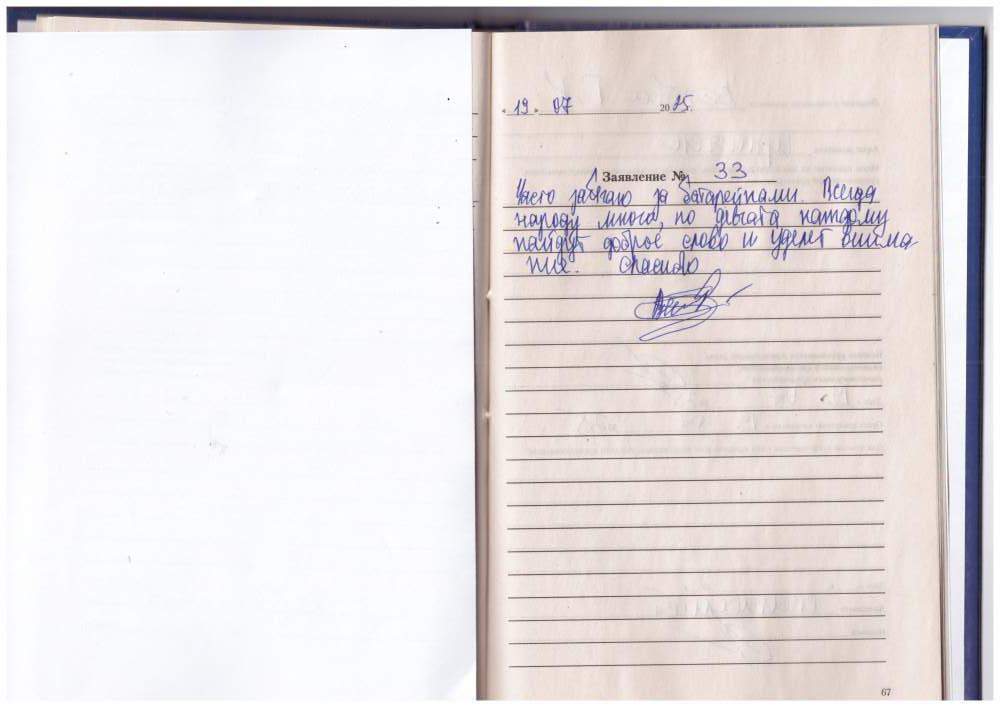 « 19 » 07 2025.
Заявление № 33
Часто забегаю за батарейками. Всегда
народу много, но девчата каждому
найдут доброе слово и уделят внима-
ния. Спасибо
67